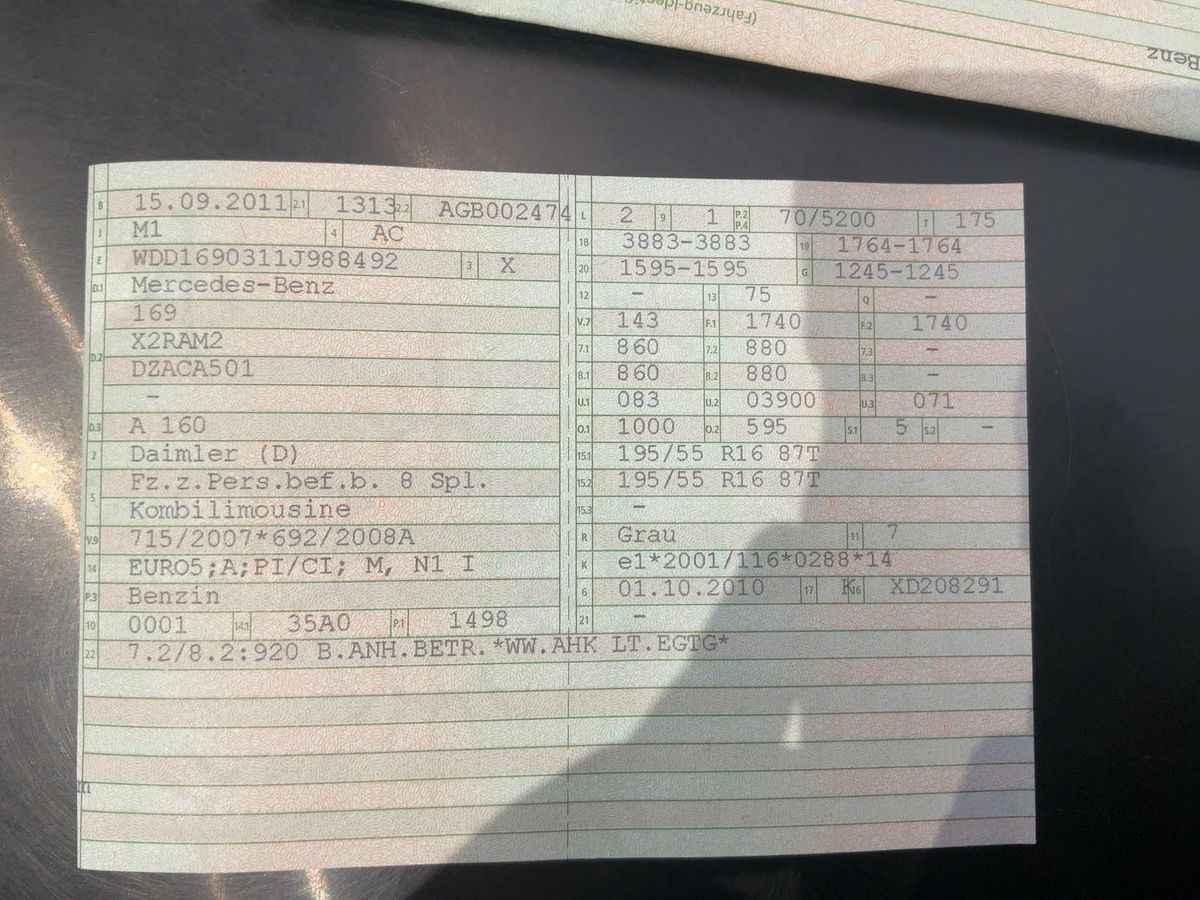 (Fahrzeug-Identif
Benz
B 15.09.2011 2.1 1313 2.2 AGB002474 L 2 9 1 P.2 P.4 70/5200 T 175
J M1 4 AC 18 3883-3883 19 1764-1764
E WDD1690311J988492 3 X 20 1595-1595 G 1245-1245
D.1 Mercedes-Benz 12 - 13 75 Q -
169 V.7 143 F.1 1740 F.2 1740
D.2 X2RAM2 7.1 860 7.2 880 7.3 -
DZACA501 8.1 860 8.2 880 8.3 -
- U.1 083 U.2 03900 U.3 071
D.3 A 160 O.1 1000 O.2 595 S.1 5 S.2 -
2 Daimler (D) 15.1 195/55 R16 87T
5 Fz.z.Pers.bef.b. 8 Spl. 15.2 195/55 R16 87T
Kombilimousine 15.3 -
V.9 715/2007*692/2008A R Grau 11 7
14 EURO5;A;PI/CI; M, N1 I K e1*2001/116*0288*14
P.3 Benzin 6 01.10.2010 17 K 16 XD208291
10 0001 14.1 35A0 P.1 1498 21 -
22 7.2/8.2:920 B.ANH.BETR.*WW.AHK LT.EGTG*
m